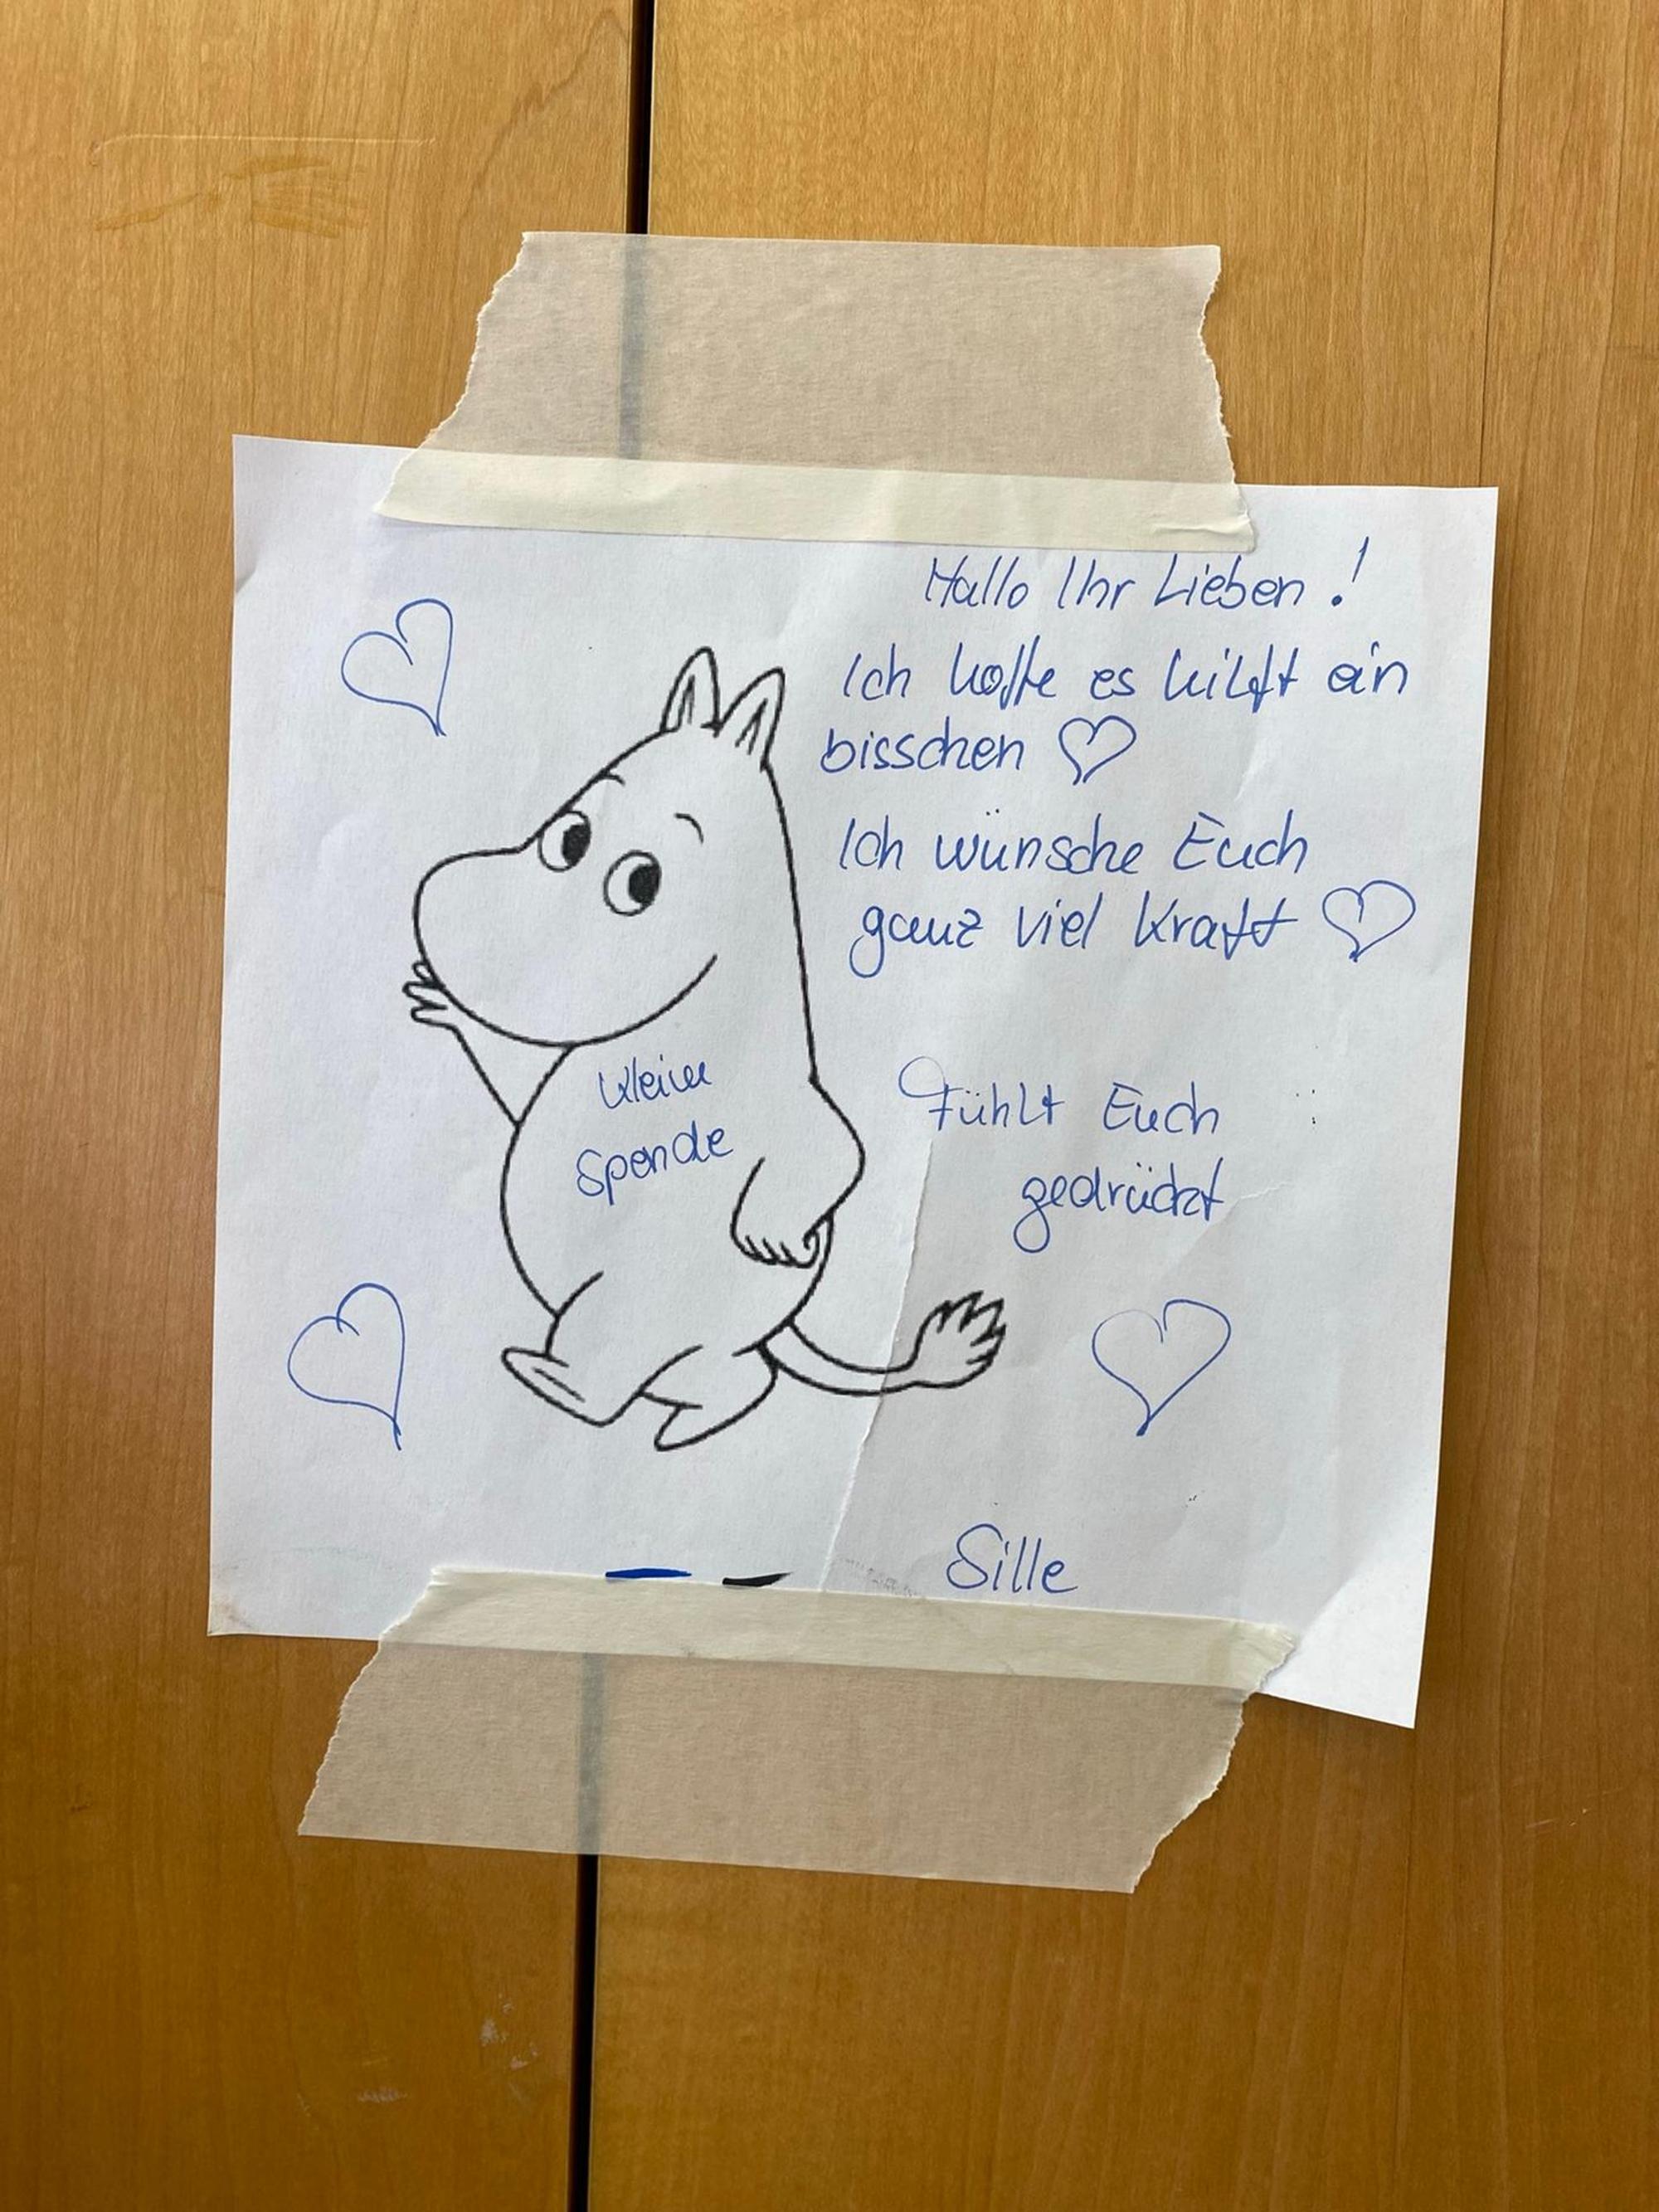 Hallo Ihr Lieben!
Ich hoffe es hilft ein
bisschen
Ich wünsche Euch
ganz viel Kraft
kleine
Spende
Fühlt Euch
gedrückt
Sille